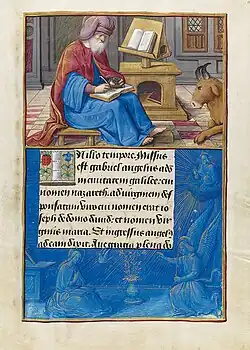 In illo tempore. Missus
est gabriel angelus a deo
in civitatem galilee: cui
nomen nazareth: ad virginem de
sponsatam viro: cui nomen erat io
seph de domo david: et nomen vir
ginis maria. Et ingressus angelus
ad eam dixit. Ave gratia plena